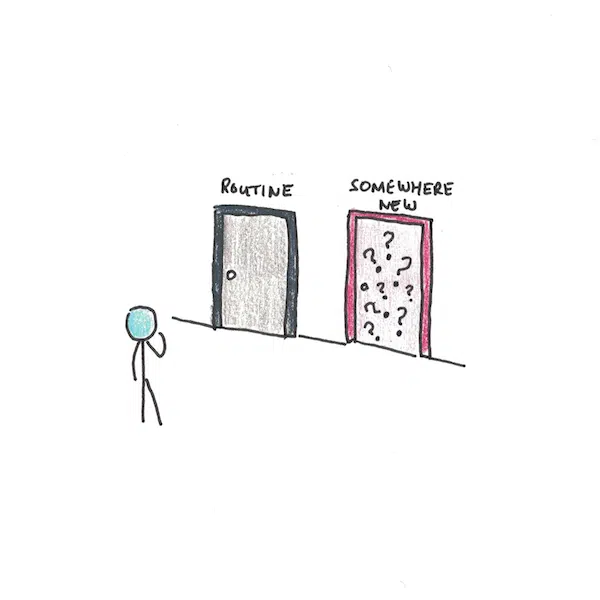 ROUTINE
SOMEWHERE
NEW
?
? ?
? ?
? ?
?